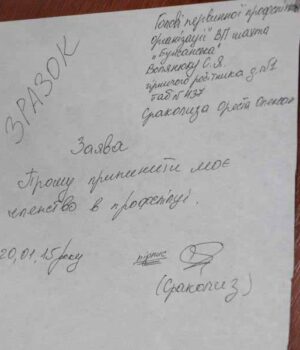 ЗРАЗОК
Голові первинної профспілк
організації ВП шахта
"Бужанська"
Вотянюку С.Я
гірничого робітника д. №1
таб №437
Сракопиза Ореста Олексан
Заява
Прошу припинити моє
членство в профспілці.
20,01,15 року
підпис
(Сракопиз)